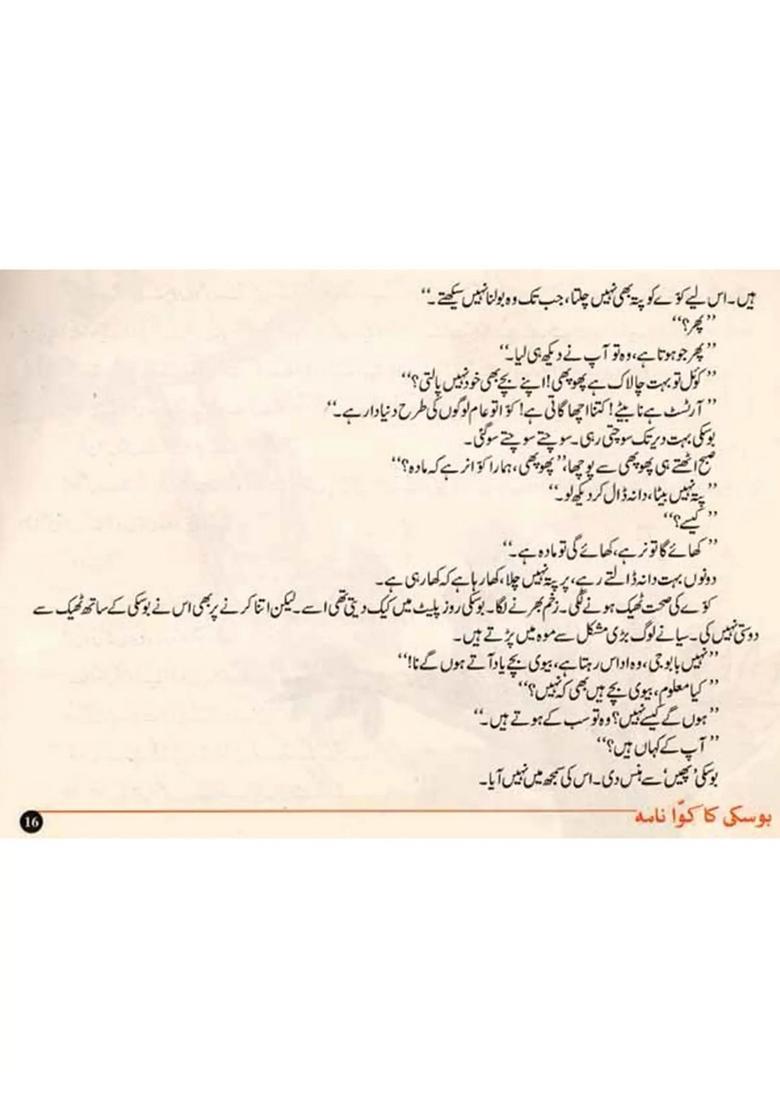 ہیں۔ اس لیے کوّے کو پتہ بھی نہیں چلتا، جب تک وہ بولنا نہیں سیکھتے۔‘‘
’’پھر؟‘‘
’’پھر جو ہوتا ہے، وہ تو آپ نے دیکھ ہی لیا۔‘‘
’’کوئل تو بہت چالاک ہے پھوپھی! اپنے بچے بھی خود نہیں پالتی؟‘‘
’’آرٹسٹ ہے نا بیٹے! کتنا اچھا گاتی ہے! کوّا تو عام لوگوں کی طرح دنیا دار ہے۔‘‘
بوسکی بہت دیر تک سوچتی رہی۔ سوچتے سوچتے سوگئی۔
صبح اٹھتے ہی پھوپھی سے پوچھا، ’’پھوپھی، ہمارا کوّا نر ہے کہ مادہ؟‘‘
’’پتہ نہیں بیٹا، دانہ ڈال کر دیکھ لو۔‘‘
’’کیسے؟‘‘
’’کھائے گا تو نر ہے، کھائے گی تو مادہ ہے۔‘‘
دونوں بہت دانہ ڈالتے رہے، پر پتہ نہیں چلا، کھا رہا ہے کہ کھا رہی ہے۔
کوّے کی صحت ٹھیک ہونے لگی۔ زخم بھرنے لگا۔ بوسکی روز پلیٹ میں کیک دیتی تھی اسے۔ لیکن اتنا کرنے پر بھی اس نے بوسکی کے ساتھ ٹھیک سے
دوستی نہیں کی۔ سیانے لوگ بڑی مشکل سے موہ میں پڑتے ہیں۔
’’نہیں بابوجی، وہ اداس رہتا ہے، بیوی بچے یاد آتے ہوں گے نا!‘‘
’’کیا معلوم، بیوی بچے ہیں بھی کہ نہیں؟‘‘
’’ہوں گے کیسے نہیں؟ وہ تو سب کے ہوتے ہیں۔‘‘
’’آپ کے کہاں ہیں؟‘‘
بوسکی ’پھیں‘ سے ہنس دی۔ اس کی سمجھ میں نہیں آیا۔
بوسکی کا کوّا نامہ
16